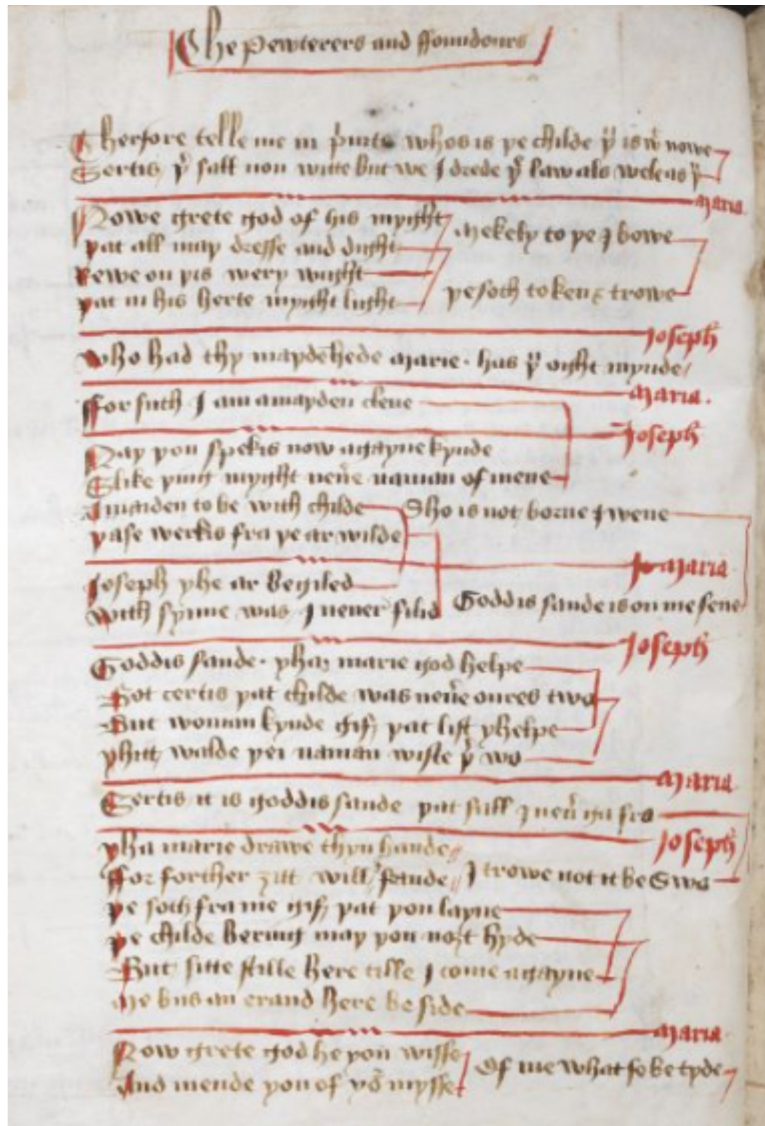 The Pewterers and ffoundours
Therfore telle me in priuite whos is þe childe þu is with nowe
Sertis þer sall non witte but we I drede þe law als wele as þu
Maria
Nowe grete god of his myght
þat all may dresse and dight
Mekely to þe I bowe
Rewe on þis wery wight
þat in his herte myght light
þe soth to ken & trowe
Joseph
Who had thy maydēhede Marie · has þu oght mynde
Maria
ffor suth I am a mayden clene
Joseph
Nay þou spekis now agayne kynde
Slike þing myght neuere naman of mene
A maiden to be with childe
þase werkis fra þe ar wilde
Sho is not borne I wene
Maria
Joseph yhe ar begiled
With synne was I neuer filid
Goddis sande is on me sene
Joseph
Goddis sande · yha marie god helpe
Bot certis þat childe was neuere oures twa
But woman kynde gif þat list yhelpe
yhitt walde þei naman wiste þer wo
Maria
Sertis it is goddis sande þat sall I neuer ga fra
Joseph
yha marie drawe thyn hande
ffor forther zitt will I fande
I trowe not it be swa
þe soth fra me gif þat þou layne
þe childe bering may þou nozt hyde
But sitte stille here tille I come agayne
Me bus an erand here be side
Maria
Now grete god he you wisse
And mende you of your mysse
Of me what so betyde